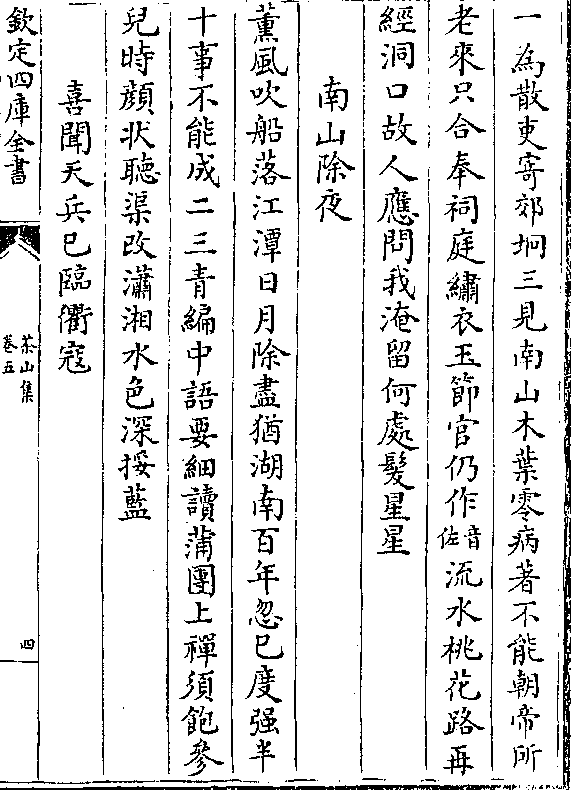 一為散吏寄郊坰三見南山木葉零病著不能朝帝所
老來只合奉祠庭繡衣玉節官仍作音佐流水桃花路再
經洞口故人應問我淹留何處髮星星
南山除夜
薰風吹船落江潭日月除盡猶湖南百年忽已度强半
十事不能成二三青編中語要細讀蒲團上禪須飽參
兒時顔狀聽渠改瀟湘水色深挼藍
喜聞天兵已臨衢寇
欽定四庫全書
茶山集
卷五
四